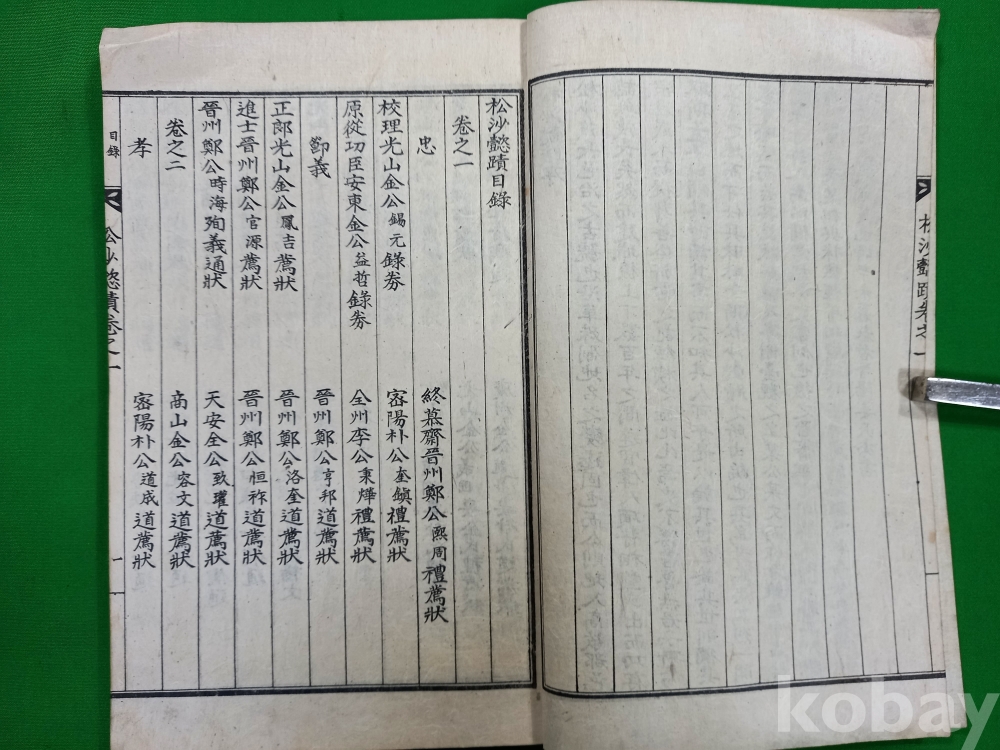 松沙懿蹟卷之一
松沙懿蹟目錄
卷之一
忠
終慕齋晉州鄭公熙周禮薦狀
校理光山金公錫元錄券
密陽朴公奎鎭禮薦狀
原從功臣安東金公益哲錄券
全州李公秉燁禮薦狀
節義
晉州鄭公亨邦道薦狀
正郎光山金公鳳吉薦狀
晉州鄭公洛奎道薦狀
進士晉州鄭公官源薦狀
晉州鄭公恒祚道薦狀
晉州鄭公時海殉義通狀
天安全公致瓘道薦狀
卷之二
高山金公容文道薦狀
孝
密陽朴公道成道薦狀
目錄
松沙懿蹟卷之一
一
kobay